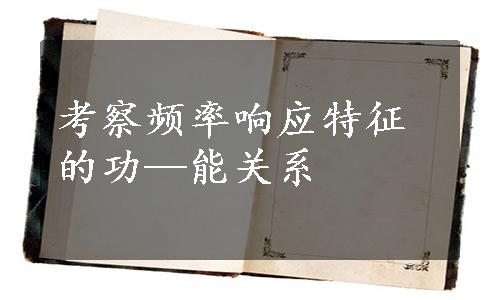 考察频率响应特征
的功—能关系